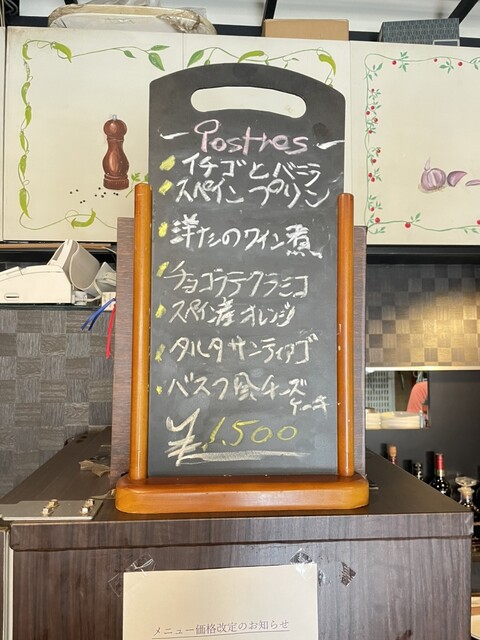 Postres
イチゴとバニラ
スペインプリン
洋なしのワイン煮
チョコラテクラミコ
スペイン産オレンジ
タルタサンティアゴ
バスク風チーズ
ケーキ
¥1,500
メニュー価格改定のお知らせ